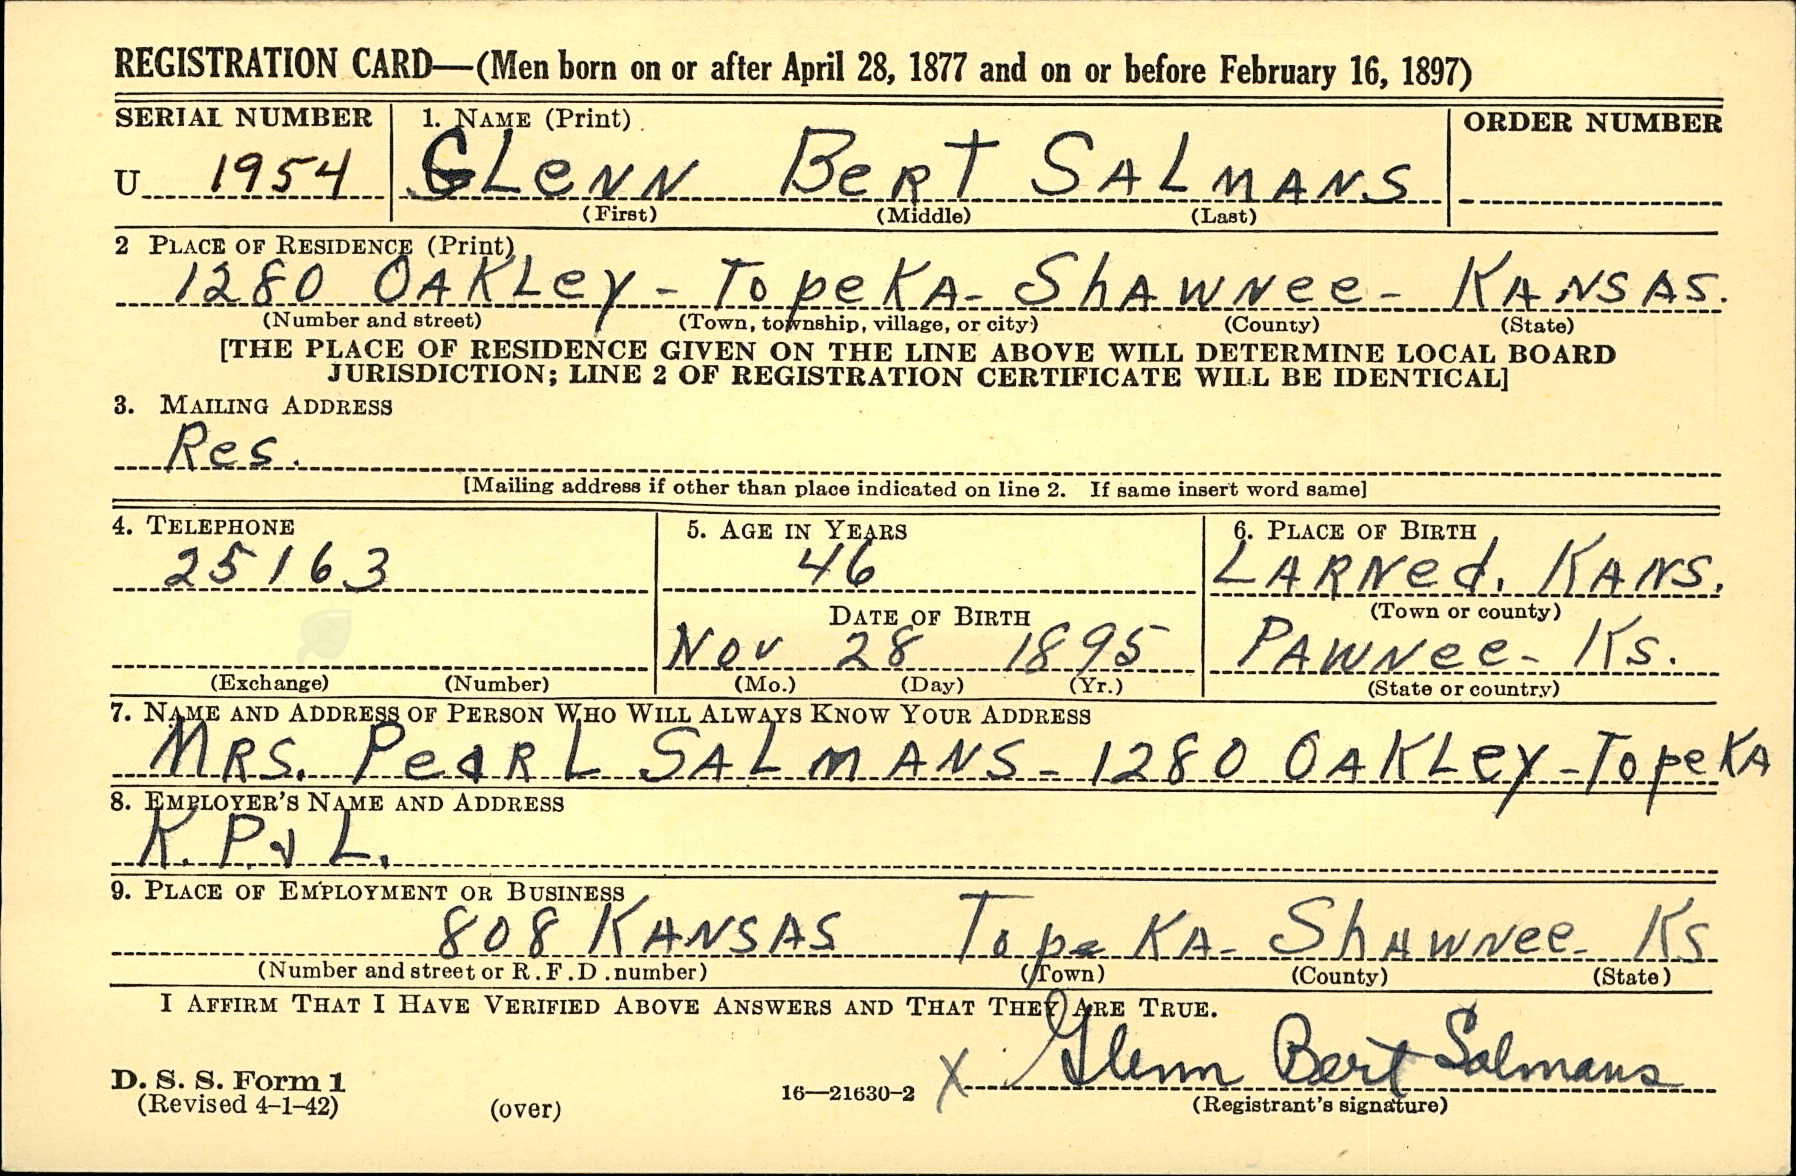 REGISTRATION CARD—(Men born on or after April 28, 1877 and on or before February 16, 1897)
SERIAL NUMBER 1. NAME (Print) ORDER NUMBER
U 1954 GLeNN BeRT SALMANS
(First) (Middle) (Last)
2 PLACE OF RESIDENCE (Print)
1280 OAKLey - TopeKA - ShAWNee - KANSAS.
(Number and street) (Town, township, village, or city) (County) (State)
[THE PLACE OF RESIDENCE GIVEN ON THE LINE ABOVE WILL DETERMINE LOCAL BOARD
JURISDICTION; LINE 2 OF REGISTRATION CERTIFICATE WILL BE IDENTICAL]
3. MAILING ADDRESS
Res.
[Mailing address if other than place indicated on line 2. If same insert word same]
4. TELEPHONE 5. AGE IN YEARS 6. PLACE OF BIRTH
25163 46 LARNed, KANS.
DATE OF BIRTH (Town or county)
Nov 28 1895 PAWNee - Ks.
(Exchange) (Number) (Mo.) (Day) (Yr.) (State or country)
7. NAME AND ADDRESS OF PERSON WHO WILL ALWAYS KNOW YOUR ADDRESS
MRS. PeaRL SALMANS - 1280 OAKLey - TopeKA
8. EMPLOYER'S NAME AND ADDRESS
K. P. & L.
9. PLACE OF EMPLOYMENT OR BUSINESS
808 KANSAS TopeKA - ShAWNee - Ks
(Number and street or R.F.D. number) (Town) (County) (State)
I AFFIRM THAT I HAVE VERIFIED ABOVE ANSWERS AND THAT THEY ARE TRUE.
X Glenn Bert Salmans
D. S. S. Form 1
(Revised 4-1-42) (over) 16—21630-2 (Registrant's signature)